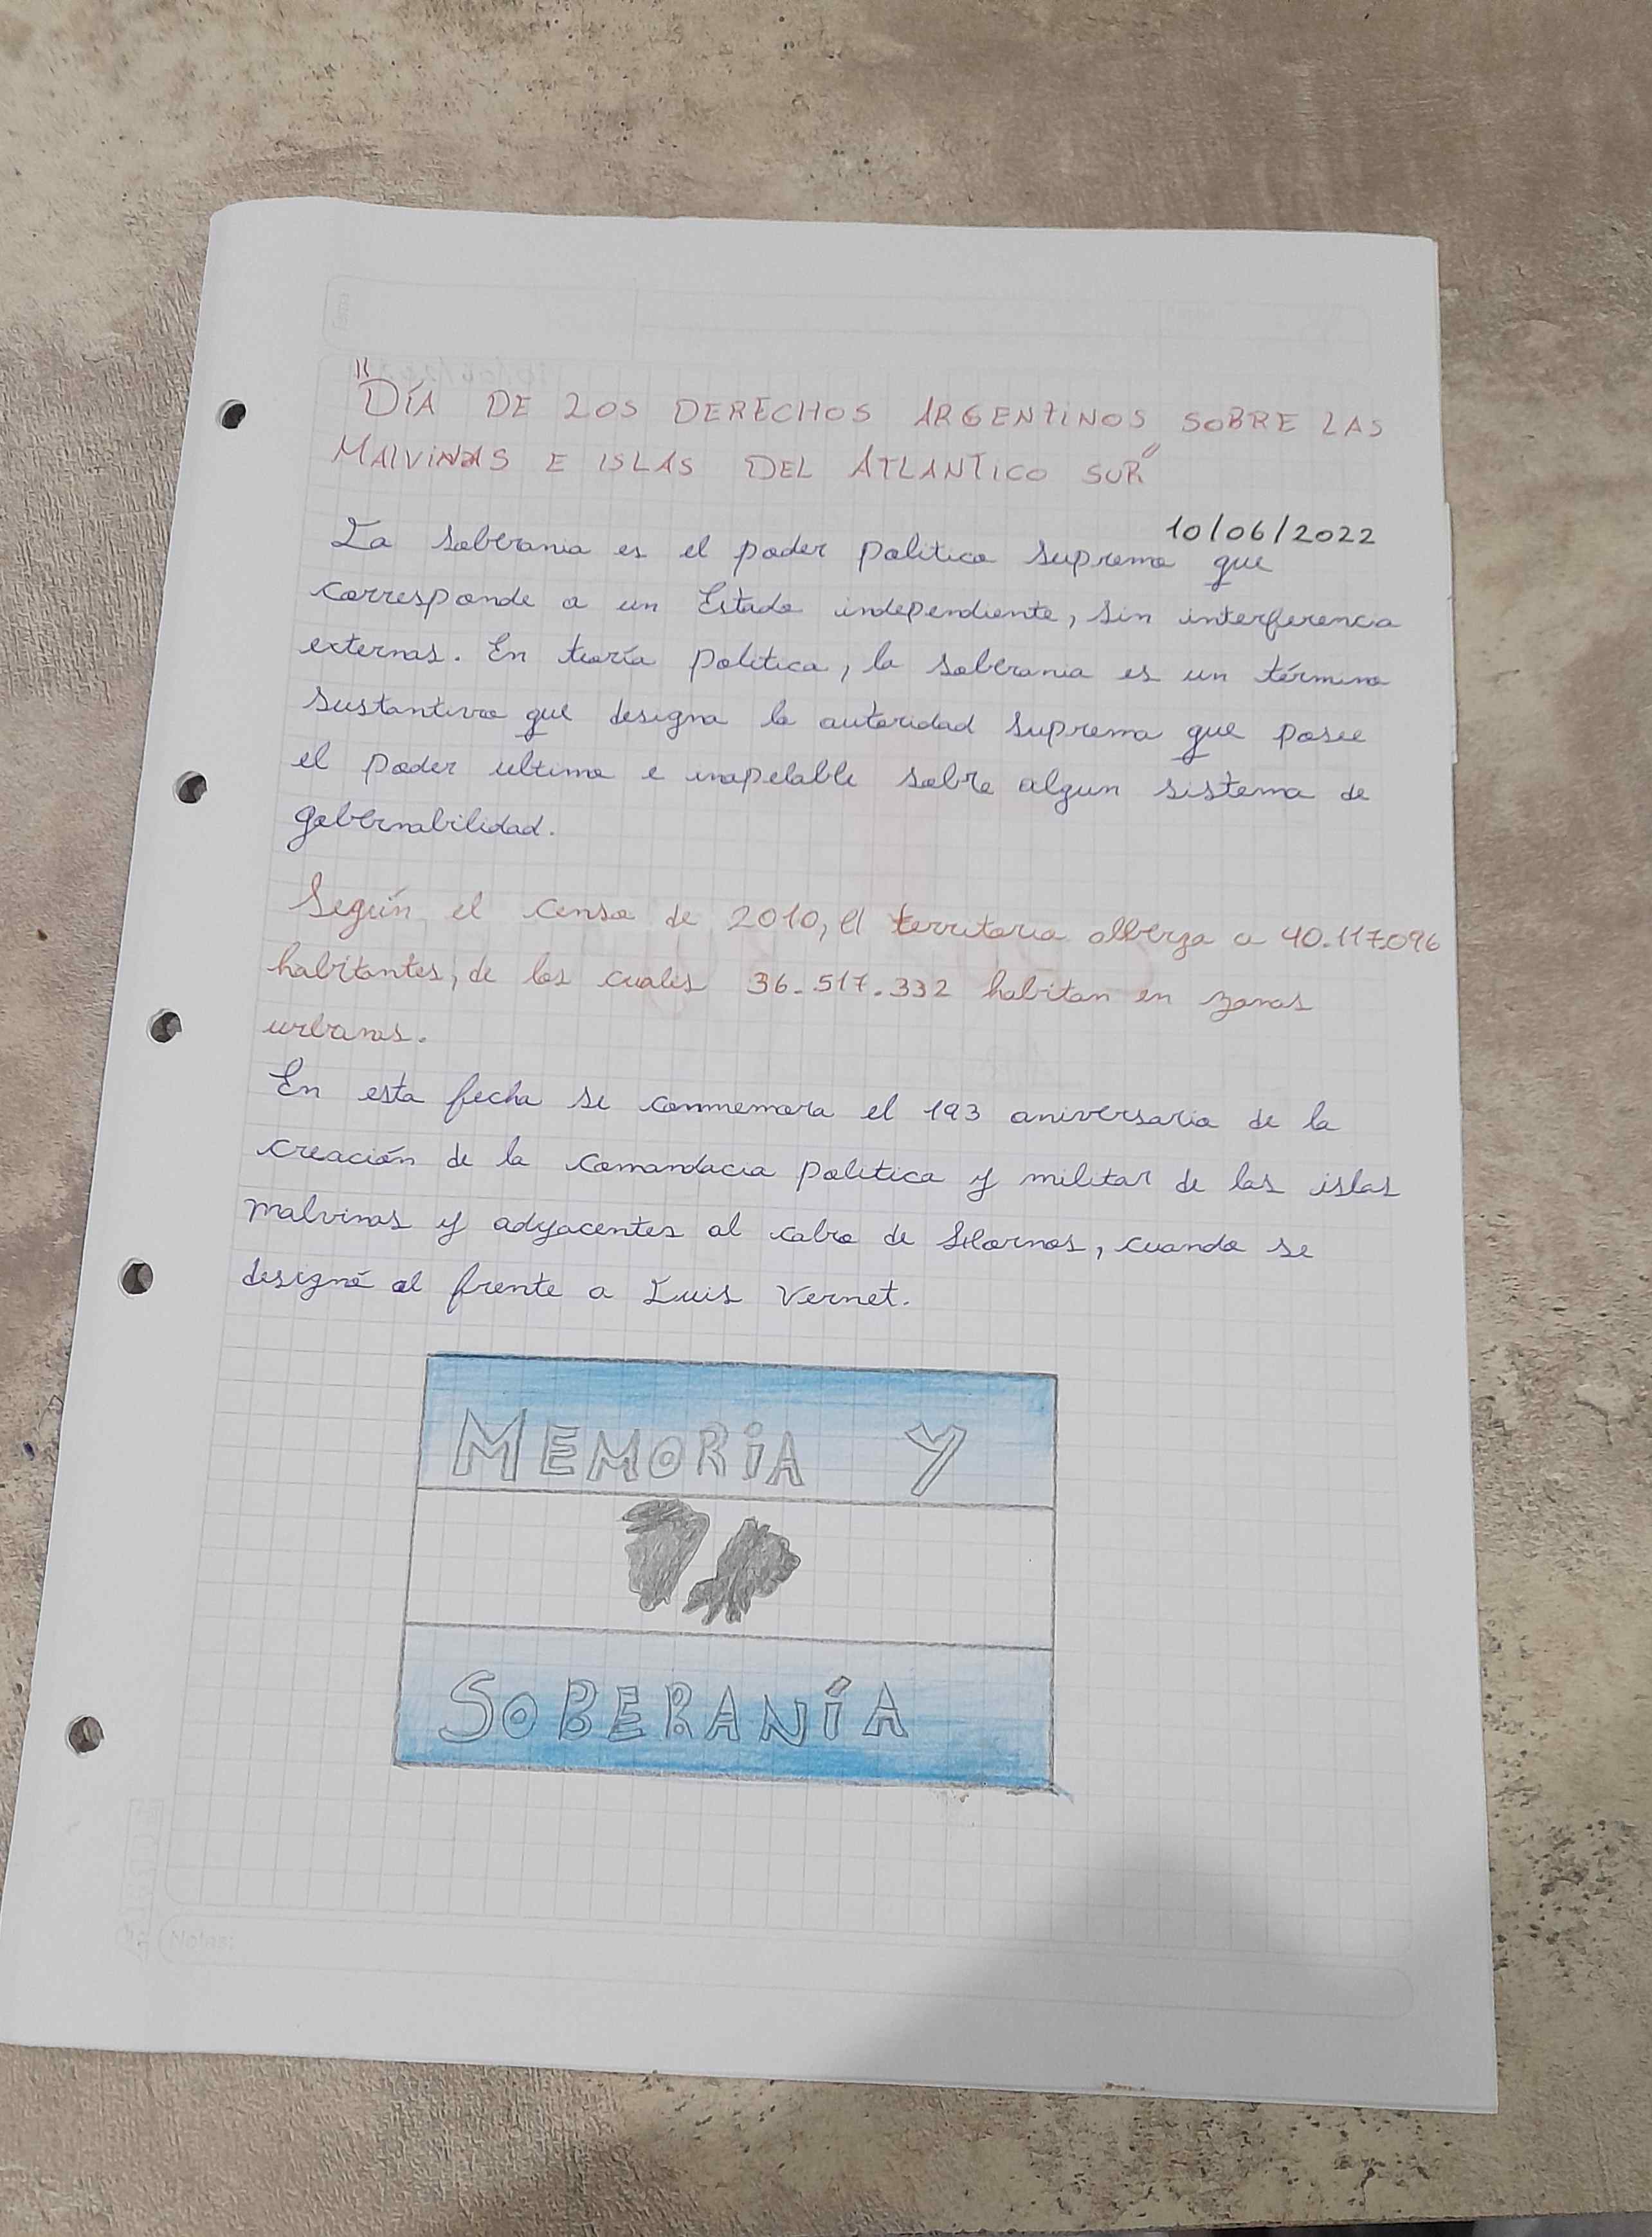 "DÍA DE LOS DERECHOS ARGENTINOS SOBRE LAS
MALVINAS E ISLAS DEL ATLANTICO SUR"
10/06/2022
La soberania es el poder politico supremo que
corresponde a un Estado independiente, sin interferencia
externas. En teoría politica, la soberania es un término
sustantivo que designa la autoridad suprema que posee
el poder ultimo e inapelable sobre algun sistema de
gobernabilidad.
Según el censo de 2010, el territorio alberga a 40.117.096
habitantes, de los cuales 36.517.332 habitan en zonas
urbanas.
En esta fecha se conmemora el 193 aniversario de la
creación de la comandacia politica y militar de las islas
malvinas y adyacentes al cabo de Hornos, cuando se
designó al frente a Luis Vernet.
MEMORIA Y
SOBERANÍA
Notas: